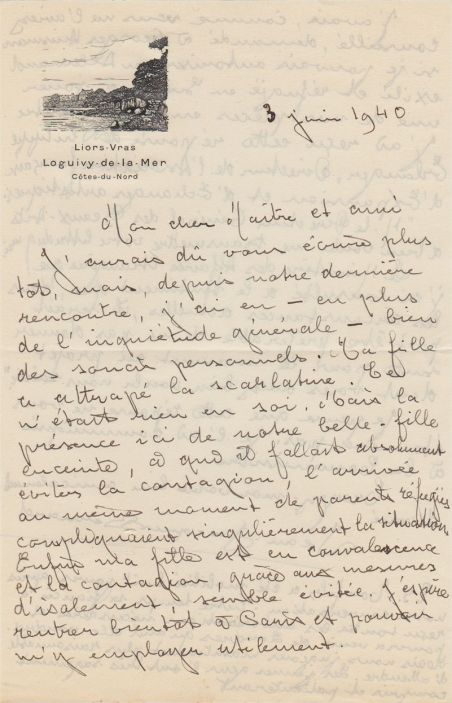 3 juin 1940
Liors-Vras
Loguivy-de-la-Mer
Côtes-du-Nord
Mon cher Maître et ami
J'aurais dû vous écrire plus
tôt, mais, depuis notre dernière
rencontre, j'ai eu – en plus
de l'inquiétude générale – bien
des soucis personnels. Ma fille
a attrapé la scarlatine. Ce
n'était rien en soi, mais la
présence ici de notre belle-fille
enceinte, à qui il fallait absolument
éviter la contagion, l'arrivée
au même moment de parents réfugiés
compliquaient singulièrement la situation.
Enfin ma fille est en convalescence
et la contagion, grâce aux mesures
d'isolement, semble évitée. J'espère
rentrer bientôt à Paris et pouvoir
m'y employer utilement.